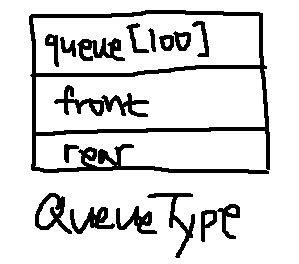 queue[100]
front
rear
QueueType